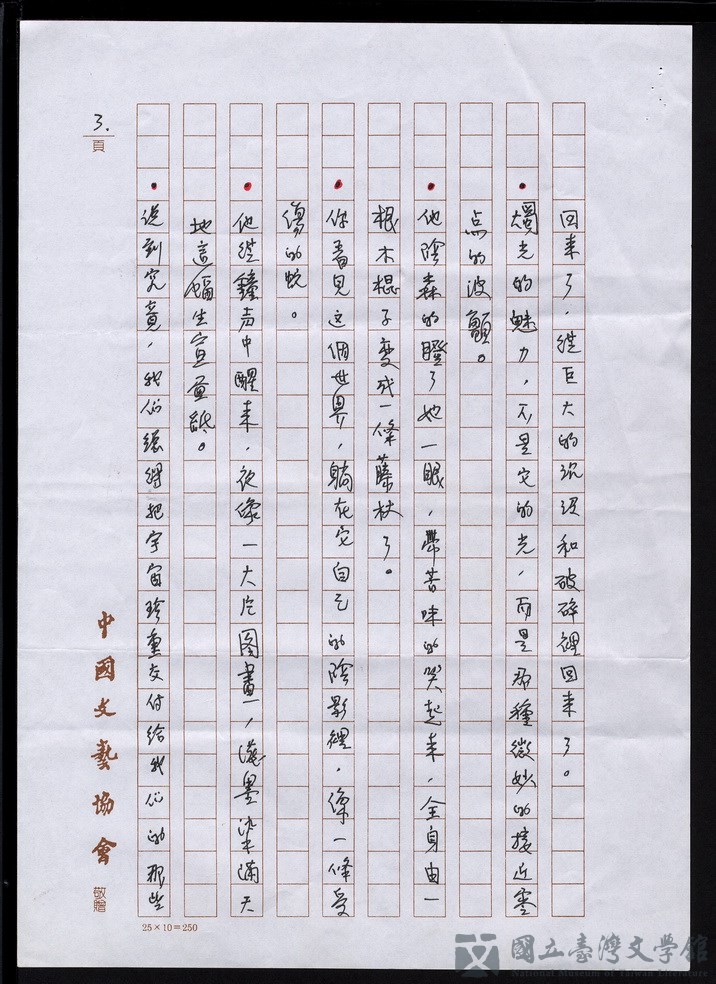 回來了，從巨大的沉浸和破碎裡回來了。
•燭光的魅力，不是它的光，而是那種微妙的接近零
点的波顫。
•他陰森的瞪了她一眼，帶苦味的哭起來，全身由一
根木棍子變成一條藤杖了。
•你看見這個世界，躺在它自己的陰影裡，像一條受
傷的蛇。
•他從鐘声中醒來，夜像一大片圖畫，濃墨染滿天
地這幅生宣畫紙。
•從到究竟，我们總得把宇宙珍重交付給我们的那些
3.
頁
中國文藝協會
敬贈
25×10=250
國立臺灣文學館
National Museum of Taiwan Literature